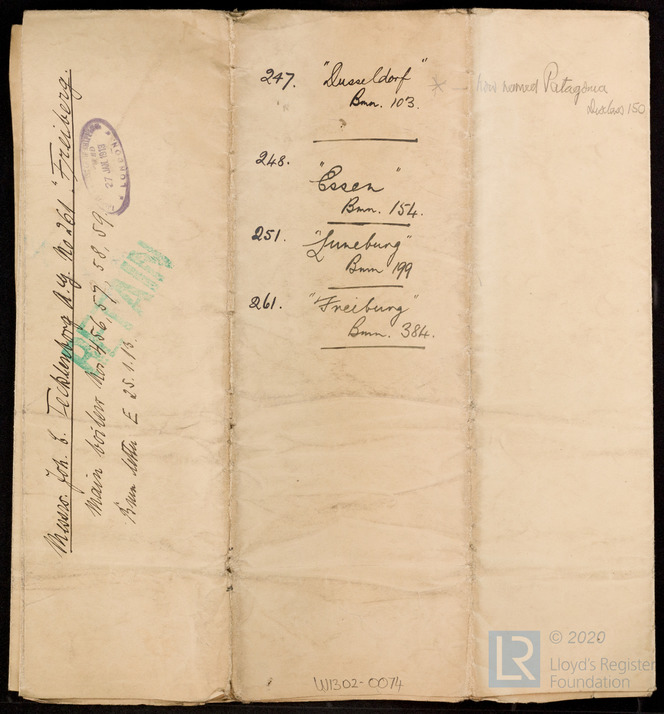 Messrs. Joh. C. Tecklenborg A.G. No 261 "Freiberg.
Main boilers Nos 456, 57, 58, 59
Bmn letter E 25.1.13.
27 JAN 1913
LONDON
RETAIN
247. "Dusseldorf"
Bmn. 103.
248.
"Essen"
Bmn. 154.
251. "Luneburg"
Bmn 199
261. "Freiburg"
Bmn. 384.
now named Patagonia
Dusslars 150
W1302-0074
LR
© 2020
Lloyd's Register
Foundation